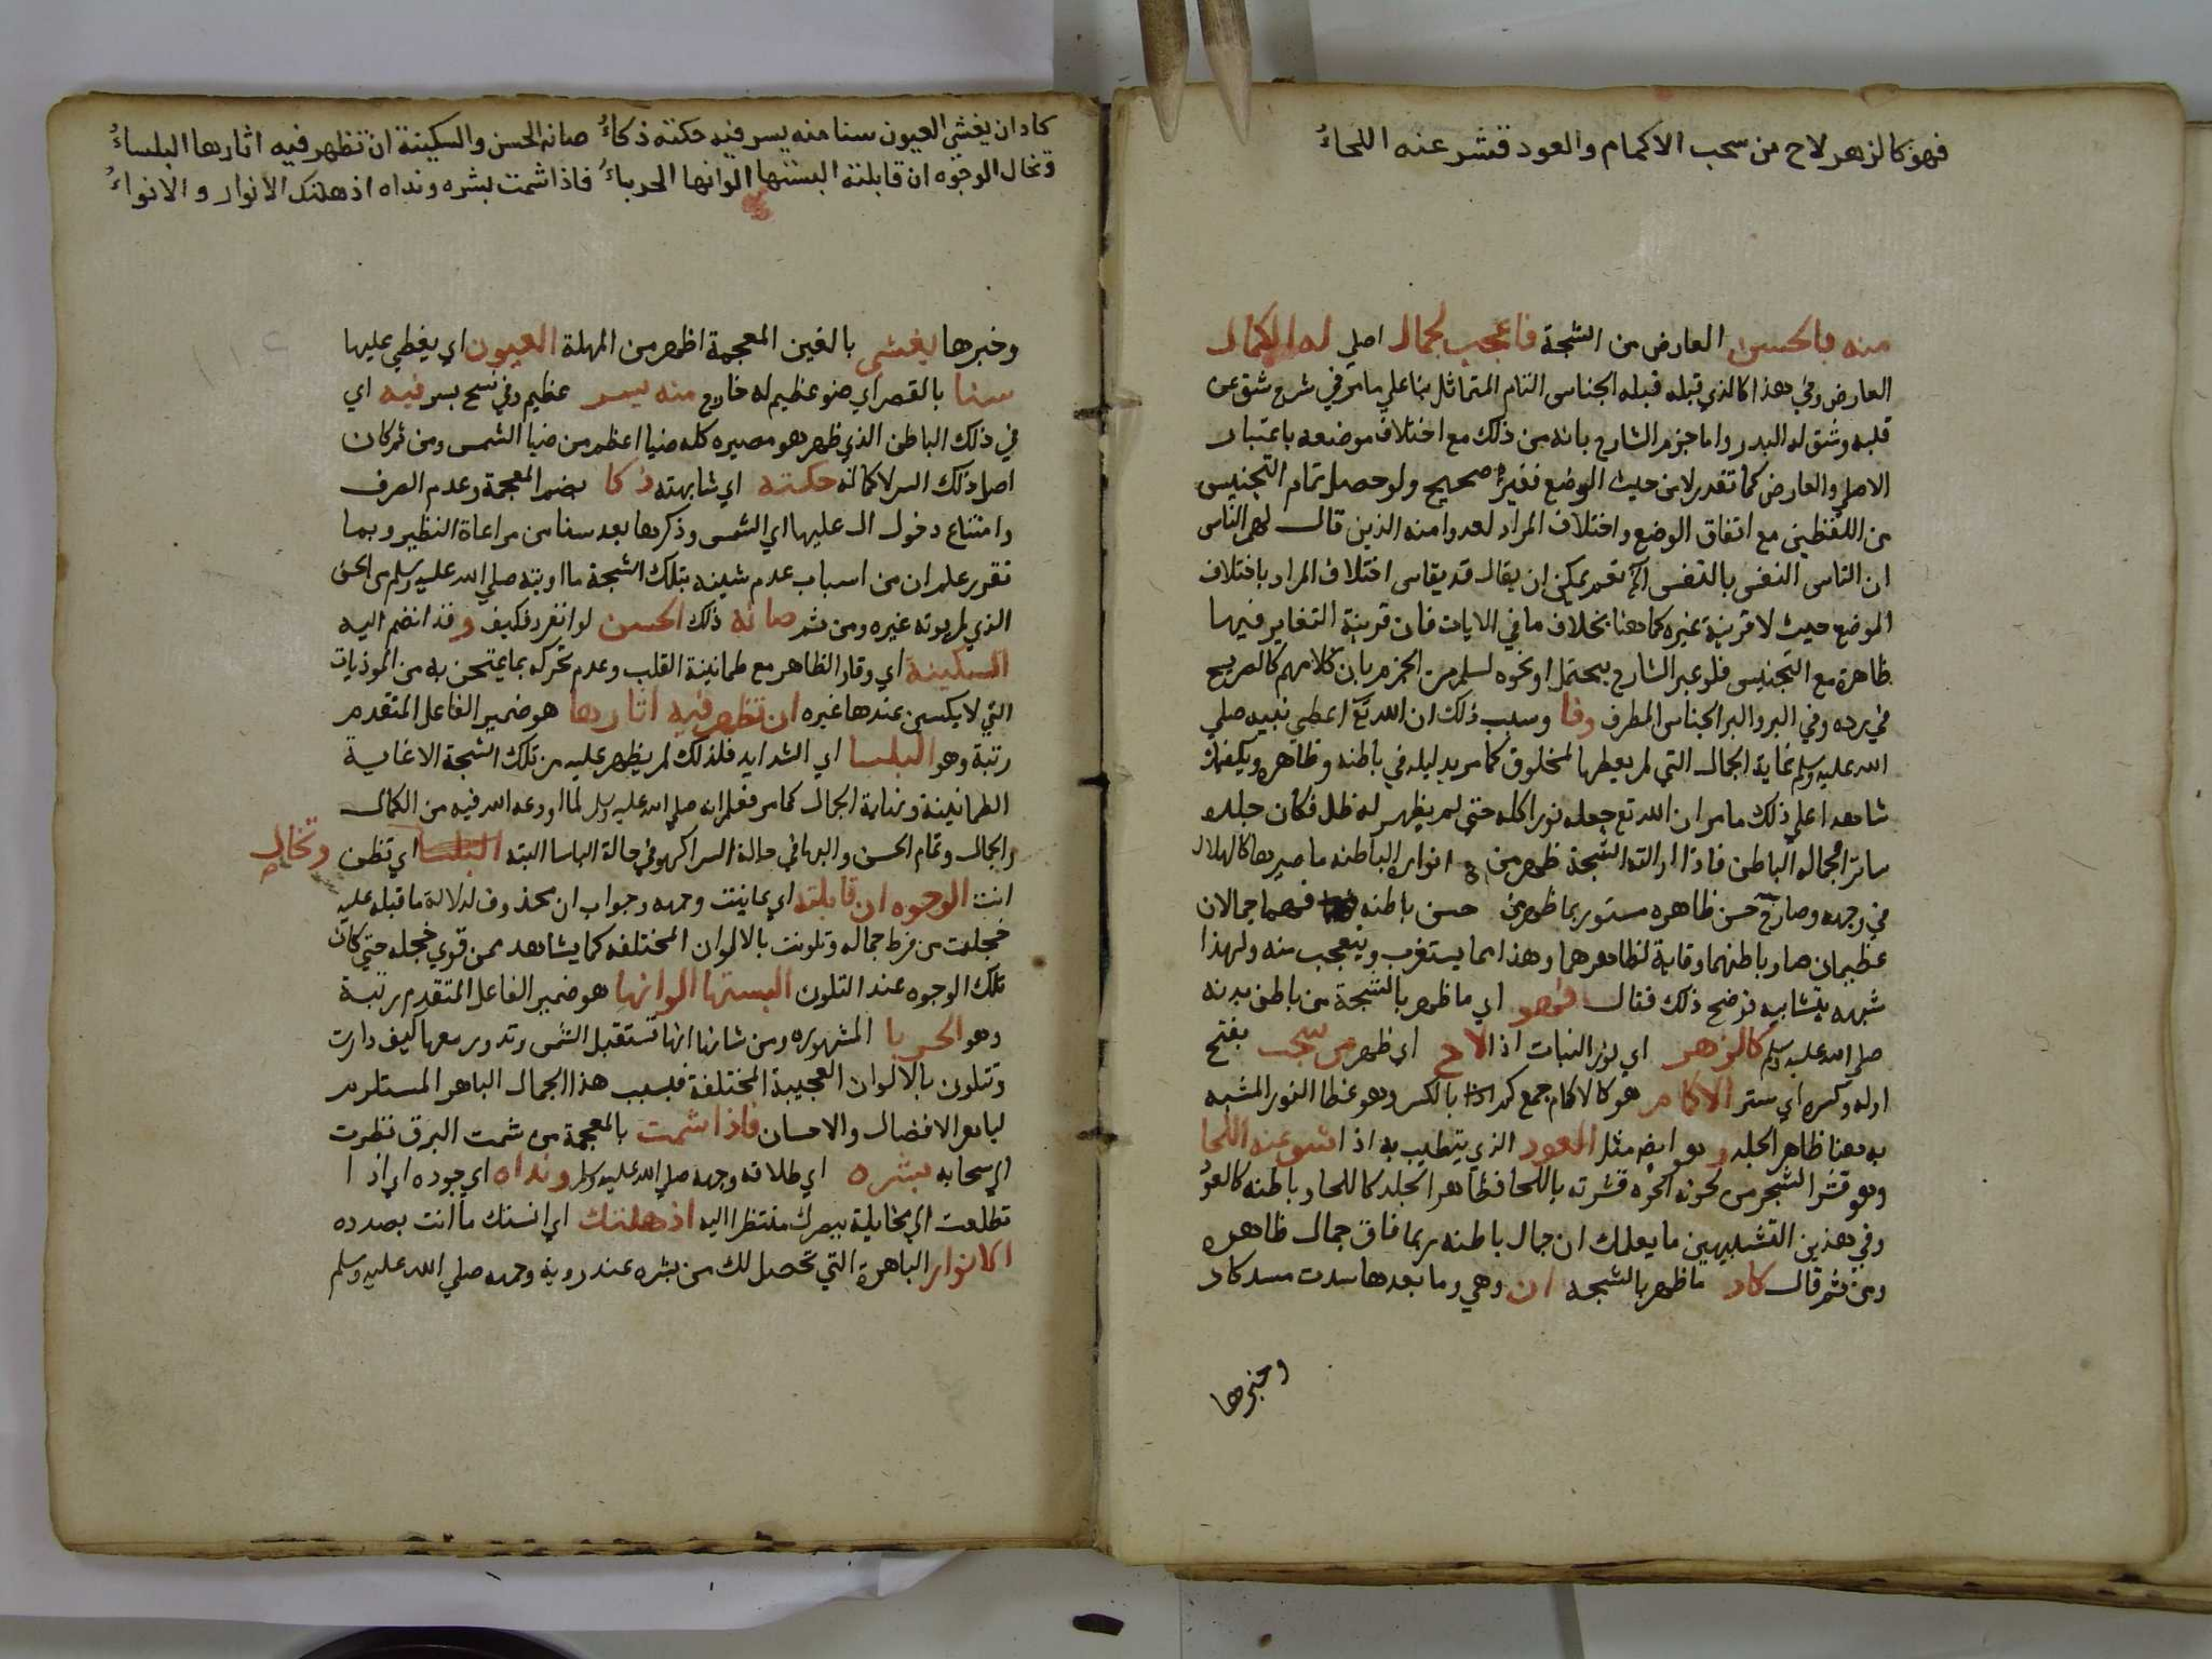 فهو كالزهر لاح من سحب الاكمام والعود قشر عنه اللحاءُ
منه بالحسن العارض من الشجة فاعجب لجمال اصلي له الجمال
العارض وفي هذا كالذي قبله قبله الجناس التام المتماثل بنا علي ما مر في شرح شق عن
قلبه وشق له البدر واما جزم الشارح بانه من ذلك مع اختلاف موضعه باعتبار
الاصلي والعارض كما تقدر لا من حيث الوضع فغير صحيح ولو حصل تمام التجنيس
من اللفظين مع اتفاق الوضع واختلاف المراد لعدوا منه الذين قال لهم الناس
ان الناس النفس بالنفس نعم يمكن ان يقال قد يقاس اختلاف المراد باختلاف
الموضع حيث لا قرينة غيره كما هنا بخلاف ما في الايات فان قرينة التغاير فيها
ظاهرة مع التجنيس فلو عبر الشارح بيحتمل او نحوه لسلم من الجزم بان كلامهم كالصريح
في رده وفي البر والبر الجناس المطرف وفا وسبب ذلك ان الله تع اعطي نبيه صلي
الله عليه وسلم غاية الجمال التي لم يعطها لمخلوق كما مر بدليله في باطنه وظاهره ويكفيك
شاهدا علي ذلك ما مر ان الله تع جعله نورا كله حتي لم يظهر له ظل فكان جلده
ساترا لجمال الباطن فاذا ازالته الشجة ظهر من انوار الباطنه ما صيرها كالهلال
في وجهه وصار حسن ظاهره مستور بما ظهر من حسن باطنه فهما جمالان
عظيمان صار باطنهما وقاية لظاهرهما وهذا مما يستغرب ويتعجب منه ولهذا
شبهه بتشابيه توضح ذلك فقال فهو اي ما ظهر بالشجة من باطن بدنه
صلي الله عليه وسلم كالزهر اي نور النبات اذا لاح اي ظهر من سجب بفتح
اوله وكسره اي ستر الاكمام هو كالاكام جمع كم بالكسر وهو غطا النور المشبه
به هنا ظاهر الجلد و هو ايضا مثل العود الذي يتطيب به اذا شق عنه اللحا
وهو قشر الشجر من لحوته الحوه قشرته باللحا فظاهر الجلد كاللحا وباطنه كالعود
وفي هذين التشبيهين ما يعلمك ان جمال باطنه ربما فاق جمال ظاهره
ومن ثم قال كاد ما ظهر بالشجه ان وهي وما بعدها سدت مسد كاد
وخبرها
كاد ان يغشي العيون سنا منه يسر فيه حكته ذكاءُ صانه الحسن والسكينة ان تظهر فيه اثارها البلساءُ
وتخال الوجوه ان قابلته البستها الوانها الحرباءُ فاذا شمت بشره ونداه اذهلتك الانوار والانواءُ
وخبرها يغشي بالغين المعجمة اظهر من المهلة العيون اي يغطي عليها
سنا بالقصر اي ضو عظيم له خارج منه يسر عظيم وفي نسخ بسر فيه اي
في ذلك الباطن الذي ظهر هو مصيره كله ضيا اعظم من ضيا الشمس ومن ثم كان
اصل ذلك السر لا كماله حكته اي شابهته ذكا بضم المعجمة وعدم الصرف
وامتناع دخول ال عليها اي الشمس وذكرها بعد سنا من مراعاة النظير وبما
تقرر علم ان من اسباب عدم شينه بتلك الشجة ما اوتيه صلي الله عليه وسلم من الحسن
الذي لم يوته غيره ومن ثم صانه ذلك الحسن لو انفرد فكيف وقد انضم اليه
السكينة اي وقار الظاهر مع طمانينة القلب وعدم تحركه بما يمتحن به من الموذيات
التي لا يكسبن عندها غيره ان تظهر فيه اثارها هو ضمير الفاعل المتقدم
رتبة وهو البلسا اي الشدايد فلذلك لم يظهر عليه من تلك الشجة الا غاية
الطمانينة ونهاية الجمال كما مر فعلم انه صلي الله عليه وسلم لما اودعه الله فيه من الكمال
والجمال وتمام الحسن والبها في حالة السرا كهو في حالة الباسا البته اي تظن وتخال
انت الوجوه ان قابلته اي عاينت وجهه وجواب ان محذوف لدلالة ما قبله عليه
خجلت من فرط جماله وتلونت بالالوان المختلفه كما يشاهد ممن قوي خجله حتي كان
تلك الوجوه عند التلون البستها الوانها هو ضمير الفاعل المتقدم رتبة
وهو الحربا المشهوره ومن شانها انها تستقبل الشمس وتدور معها كيف دارت
وتتلون بالالوان العجيبة المختلفة فبسبب هذا الجمال الباهر المستلزم
لباهر الافضال والاحسان فاذا شمت بالمعجمة من شمت البرق نظرت
الي سحابه بشره اي طلاقة وجهه صلي الله عليه وسلم ونداه اي جوده اي اذا
تطلعت الي مخايلة ببصرك منتظرا اليه اذهلتك اي انستك ما انت بصدده
الانوار الباهرة التي تحصل لك من بشره عند روية وجهه صلي الله عليه وسلم